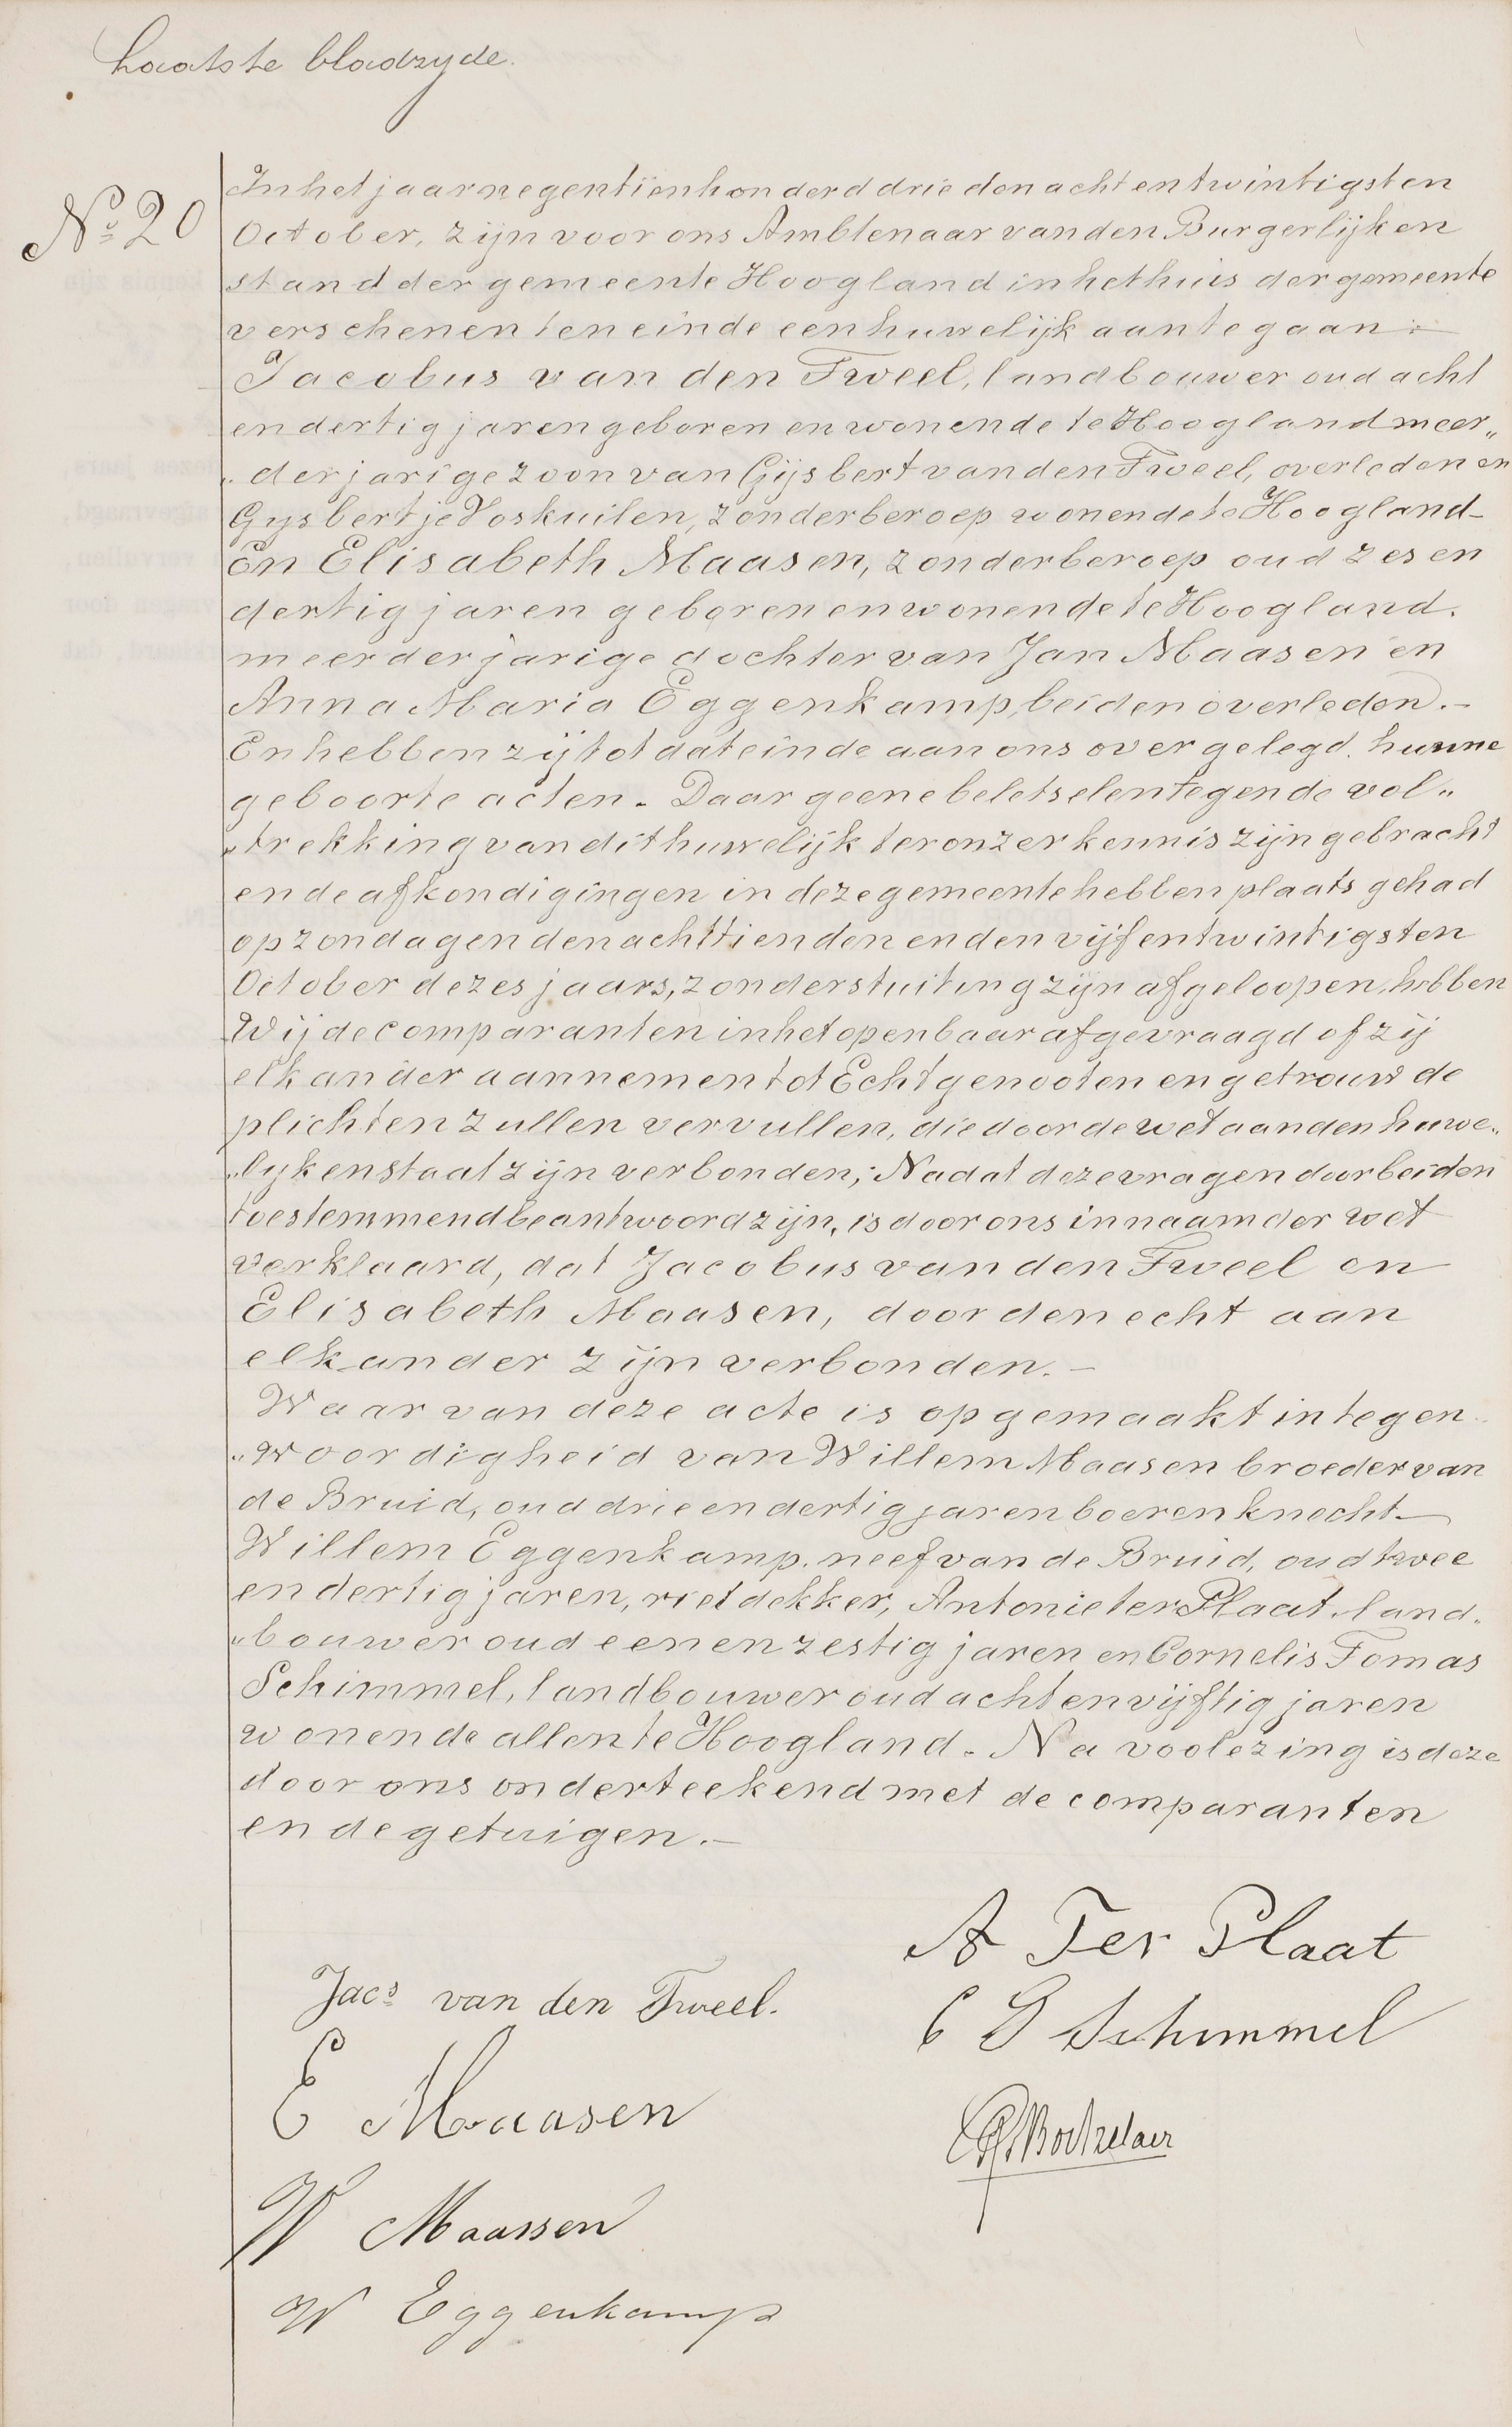 Laatste bladzyde.
No 20
In het jaar negentienhonderd drie den achtentwintigsten
October, zijn voor ons Ambtenaar van den Burgerlijken
stand der gemeente Hoogland in het huis der gemeente
verschenen ten einde een huwelijk aan te gaan:
Jacobus van den Tweel, landbouwer oud acht
en dertig jaren geboren en wonende te Hoogland meer„
„derjarige zoon van Gijsbert van den Tweel, overleden en
Gysbertje Voskuilen, zonder beroep wonende te Hoogland-
En Elisabeth Maasen, zonder beroep oud zes en
dertig jaren geboren en wonende te Hoogland.
meerderjarige dochter van Jan Maasen en
Anna Maria Eggenkamp, beiden overleden.-
En hebben zij tot dat einde aan ons overgelegd. hunne
geboorte acten. Daar geene beletselen tegen de vol„
„trekking van dit huwelijk ter onzer kennis zijn gebracht
en de afkondigingen in deze gemeente hebben plaats gehad
op zondagen den achttienden en den vijfentwintigsten
October dezes jaars, zonder stuiting zijn afgeloopen, hebben
Wij de comparanten in het openbaar afgevraagd of zij
elkander aannemen tot Echtgenooten en getrouw de
plichten zullen vervullen, die door de wet aan den huwe„
„lyken staat zijn verbonden; Nadat deze vragen door beiden
toestemmend beantwoord zijn, is door ons in naam der wet
verklaard, dat Jacobus van den Tweel en
Elisabeth Maasen, door den echt aan
elkander zijn verbonden.-
Waarvan deze acte is opgemaakt in tegen
„woordigheid van Willem Maasen broeder van
de Bruid, oud drie en dertig jaren boerenknecht-
Willem Eggenkamp. neef van de Bruid, oud twee
en dertig jaren, rietdekker, Antonie ter Plaat, land„
„bouwer oud een en zestig jaren en Cornelis Tomas
Schimmel, landbouwer oud acht en vijftig jaren
wonende allen te Hoogland. Na voolezing is deze
door ons onderteekend met de comparanten
en de getuigen.-
A Ter Plaat
Jacs van den Tweel.
C T Schimmel
E Maasen
W Maassen
W Eggenkamp